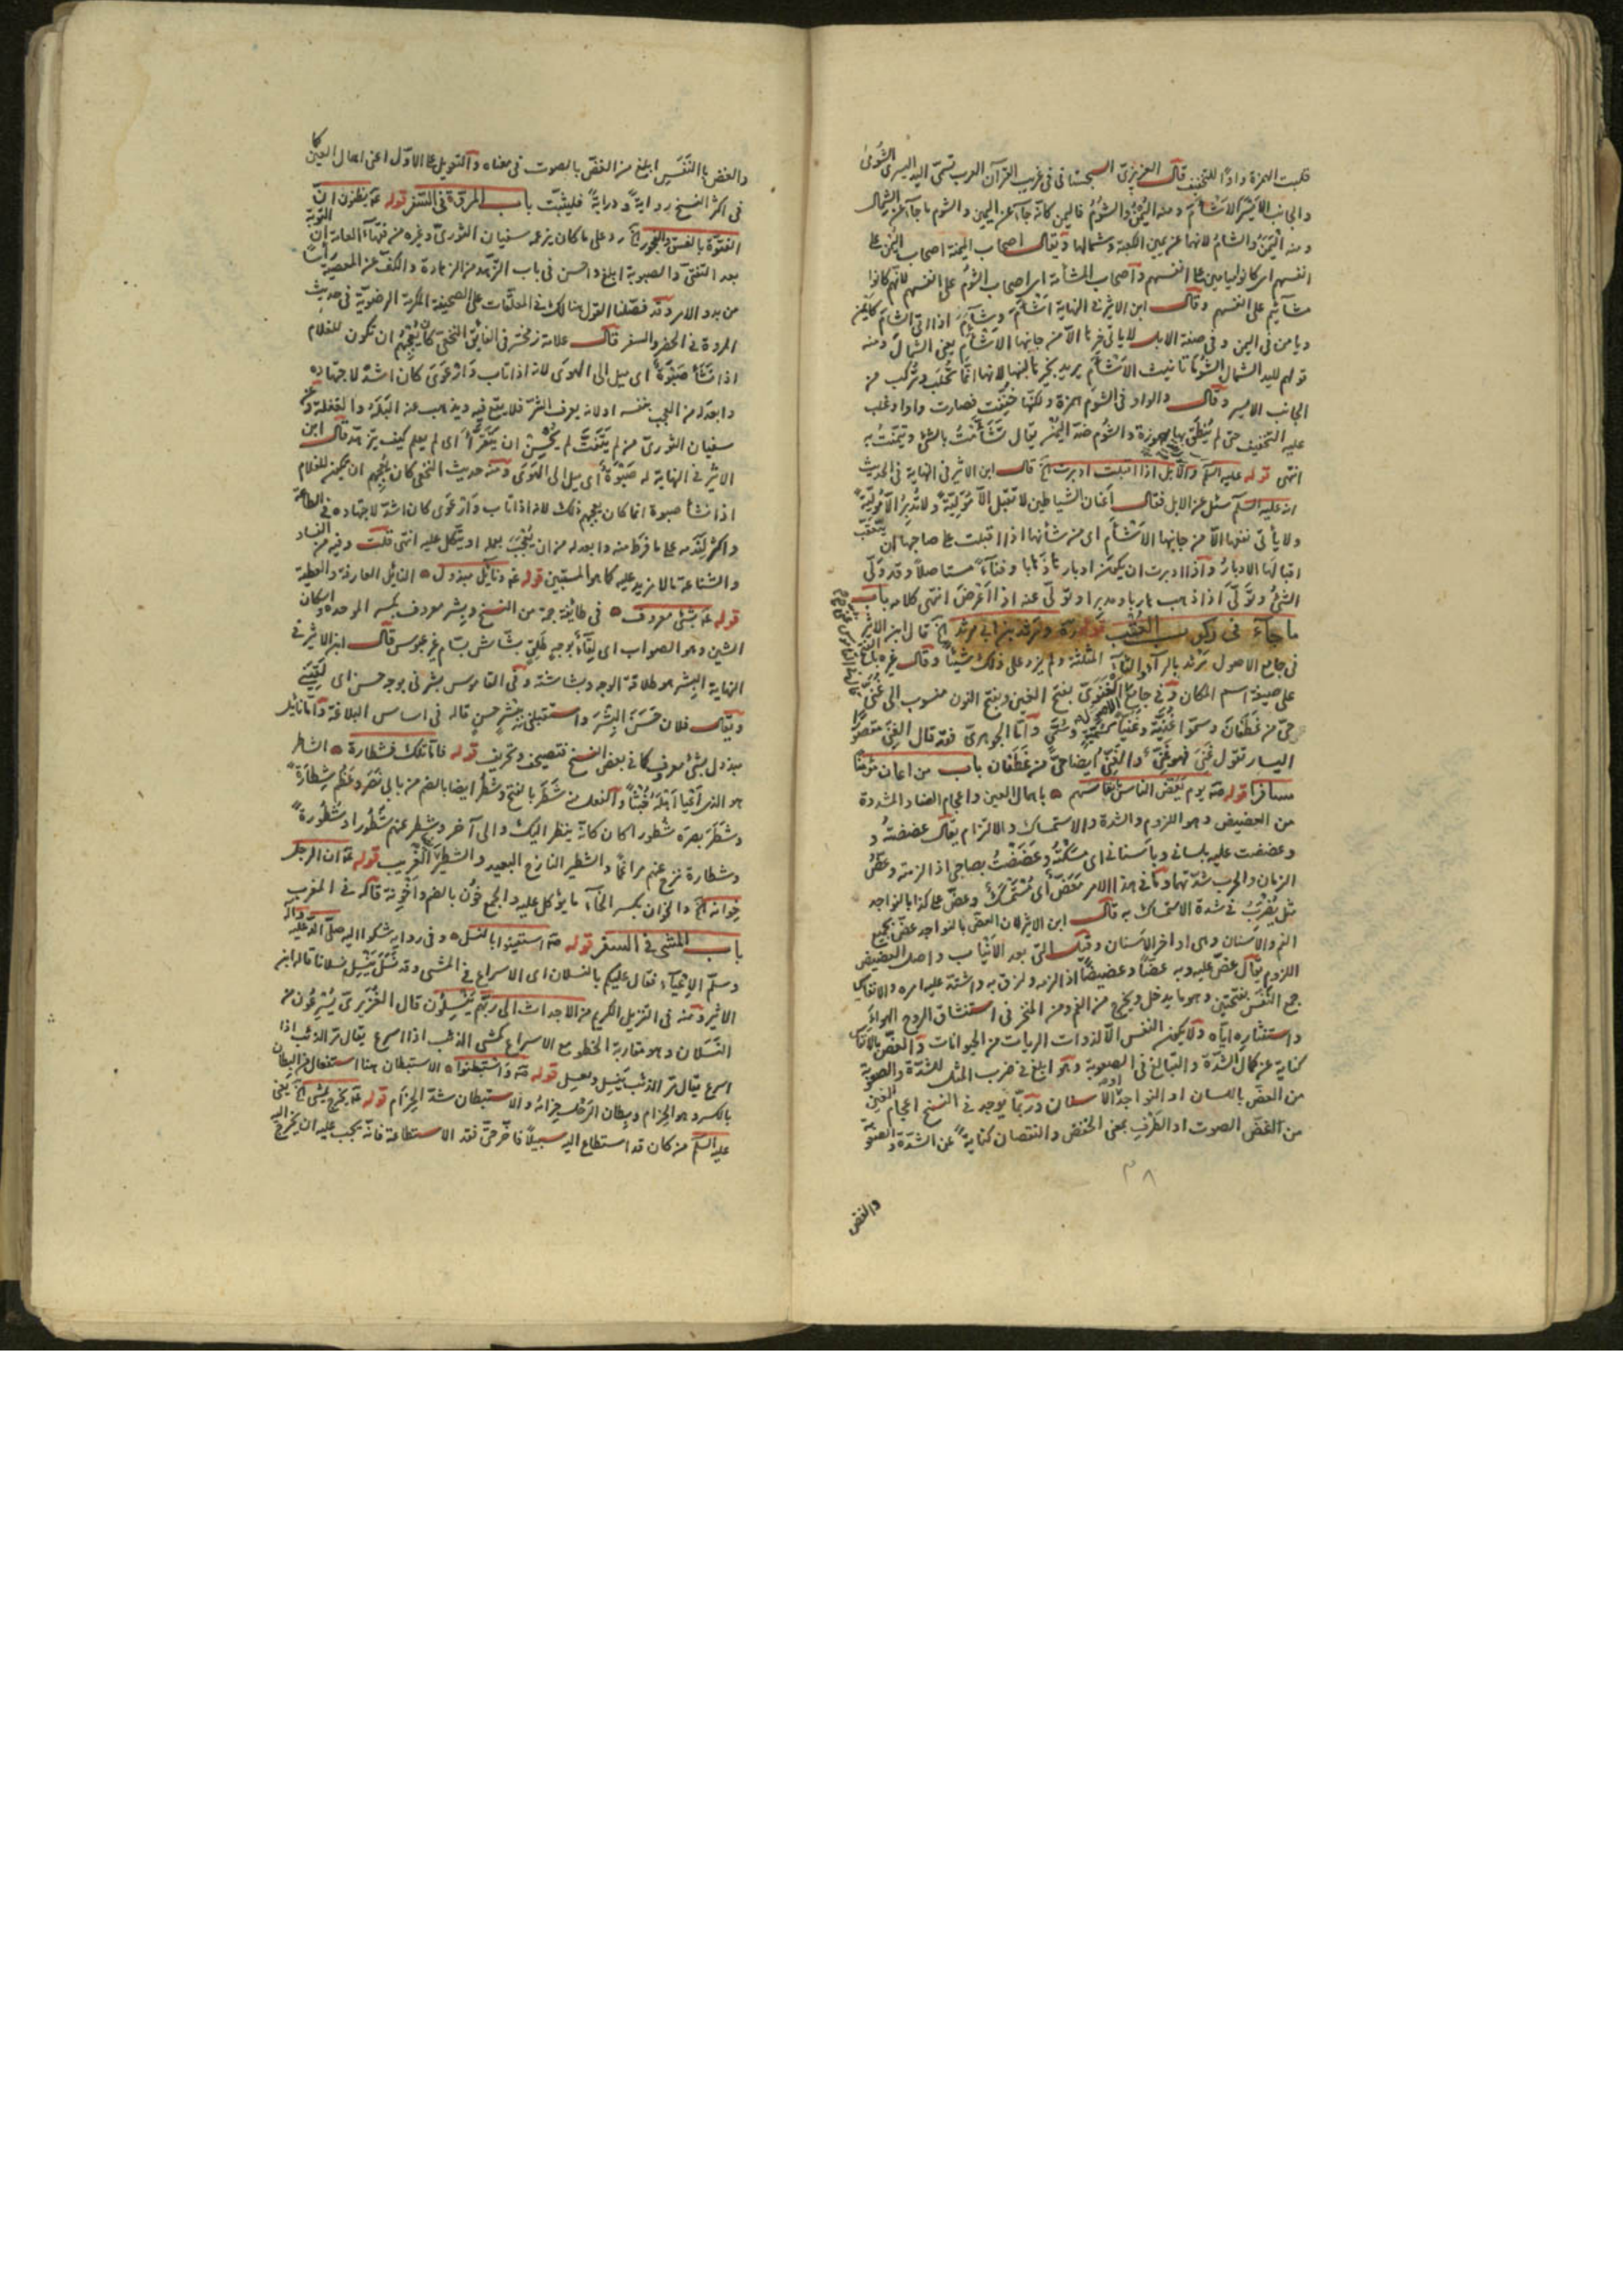 قلبت الهمزة واوًا للتخفيف قال العزيزى السجستانى فى غريب القرآن العرب تسمى اليد اليسرى الشؤمى
والجانب الايسر الاشأم ومنه اليُمن والشؤم فاليمن كانه جاء عن اليمين والشوم ما جاء عن الشمال
ومنه اليمن والشام لانها عن يمين الكعبة وشمالها ويقال اصحاب الميمنة اصحاب اليمن على
انفسهم اى كانوا ميامين على انفسهم واصحاب المشأمة اى اصحاب الشؤم على انفسهم لانهم كانوا
مشائيم على انفسهم وقال ابن الاثير فى النهاية اشأم وشاءم اذا اتى الشام كايمن
ويامن فى اليمن وفى صفة الابل لا ياتى خيرها الا من جانبها الاشأم يعنى الشمال ومنه
قولهم لليد الشمال الشؤمى تانيث الاشأم يريد بخيرها لبنها لانها انما تحلب وتركب من
الجانب الايسر وقال والواو فى الشوم همزة ولكنها خففت فصارت واوا وغلب
عليه التخفيف حتى لم ينطق بها مهموزة والشوم ضد اليمن يقال تشأمت بالشئ وتيمنت به
انتهى قوله عليه السلم والابل اذا اقبلت ادبرت الخ قال ابن الاثير فى النهاية فى الحديث
انه عليه السلم سئل عن الابل فقال اعنان الشياطين لا تقبل الا مولية ولا تدبر الا مولية
ولا يأتى نفعها الا من جانبها الاشأم اى من شأنها اذا اقبلت على صاحبها ان يتعقب
اقبالها الادبار واذا ادبرت ان يكون ادبارها ذهابا وفناء مستاصلا وقد ولى
الشئ وتولى اذا ذهب هاربا ومدبرا وتولى عنه اذا اعرض انتهى كلامه باب
ما جاء فى ركوب العقب قوله ره ومرثد بن ابى مرثد الخ قال ابن الاثير
فى جامع الاصول مرثد بالراء والثاء المثلثة ولم يزد على ذلك شيئا وقال غيره
على صيغة اسم المكان وفى جامع الاصول الغنوى بفتح الغين وبفتح النون منسوب الى غنى
حى من غطفان وسموا غنية وغنيا كسمية وسمى واما الجوهرى فقد قال الغنى مقصورا
اليسار تقول غنى فهو غنى والغنى ايضا حى من غطفان باب من اعان مؤمنا
مسافرا قوله صه يوم يعض الناس بانفاسهم ه باهمال العين واعجام الضاد المشددة
من العضيض وهو اللزوم والشدة والاستمساك والالتزام يقال عضضته و
وعضضت عليه بلسانى وباسنانى اى مسكته وعضضت بصاحبى اذا لزمته وعض
الزمان والحرب شدتهما وما فى هذا الامر معض اى مستمسك وعض على كذا بالنواجد
مثل يضرب فى شدة الاستمساك به قال ابن الاثير لان العض بالنواجد عض بجميع
الفم والاسنان وهى اواخر الاسنان وقيل التى بعد الانياب واصل العضيض
اللزوم يقال عض عليه وبه عضا وعضيضا اذا لزمه ولزق به واشتد عليه امره والانفاس
جمع النفس بفتحتين وهو ما يدخل ويخرج من الفم ومن المنخر فى استنشاق الروح الهواء
واستنثاره اياه ولا يمكنه النفس الا لذوات الريات من الحيوانات والعض بالانفاس
كناية عن كمال الشدة والتبالغ فى الصعوبة وهو ابلغ فى ضرب المثل للشدة والصعوبة
من العض باللسان او النواجد او الاسنان وربما يوجد فى النسخ اعجام الغين
من الغض الصوت او الطرف بمعنى الخفض والنقصان كناية عن الشدة والصعوبة
٣٨
والغض
والغض بالنفس ابلغ من الغض بالصوت فى معناه والتعويل على الاول اعنى اهمال العين كما
فى اكثر النسخ رواية ودراية فليثبت باب المروة فى السفر قوله عه تظنون ان
الفتوة بالفسق والفجور الخ رد على ما كان يزعمه سفيان الثورى وغيره من فقهاء العامة ان التوبة
بعد التفتى والصبوة ابلغ واحسن فى باب الزهد من الزهادة والكف عن المعصية راسا
من بدو الامر وقد فصلنا القول هنالك فى المعلقات على الصحيفة المكرمة الرضوية فى حديث
المروة فى الحضر والسفر قال علامة زمخشر فى الفايق النخعى كان يعجبهم ان تكون للغلام
اذا نشأ صبوة اى ميل الى الهوى لانه اذا تاب وارعوى كان اشد لاجتهاده
وابعد له من العجب بنفسه او لانه يعرف الشر فلا يقع فيه ويذهب عنه البله والغفلة وعن
سفيان الثورى من لم يتفت لم يحسن ان يتقرأ اى لم يعلم كيف يتزهد قال ابن
الاثير فى النهاية له صبوة اى ميل الى الهوى ومنه حديث النخعى كان يعجبهم ان يكون للغلام
اذا نشأ صبوة انما كان يعجبهم ذلك لانه اذا تاب وارعوى كان اشد لاجتهاده فى الطاعة
واكثر لندمه على ما فرط منه وابعد له من ان يعجب بعمله او يتكل عليه انتهى قلت وفيه من الفساد
والشناعة ما لا مزيد عليه كما هو المستبين قوله عه ونائل مبذول ه النائل العارفة والعطية
قوله عه بشئ معروف ه فى طائفة جمة من النسخ وبشر معروف بكسر الموحدة واسكان
الشين وهو الصواب اى يلقاه بوجه طلق بشاش بسام غير عبوس قال ابن الاثير فى
النهاية البشر هو طلاقة الوجه وبشاشته وفى القاموس بشرنى بوجه حسن اى لقينى
ويقال فلان حسن البشر واستقبلنى ببشر حسن قاله فى اساس البلاغة واما نائل
مبذول بشئ معروف كما فى بعض النسخ فتصحيف وتحريف قوله فاما تلك فشطارة ه الشاطر
هو الذى اعيا اهله خبثا والفعل منه شطر بالفتح وشطر ايضا بالضم من بابى نصر وعظم شطارة
وشطر بصره شطورا كان كانه ينظر اليك والى آخر وشطر عنهم شطورا وشطورة
وشطارة نزح عنهم مراغما والشطير النازح البعيد والشطير الغريب قوله عه ان الرجل
خوانه الخ والخوان بكسر الخاء ما يؤكل عليه والجمع خون بالضم واخونة قاله فى المغرب
باب المشى فى السفر قوله صه استعينوا بالنسل ه وفى رواية شكوا اليه صلى الله عليه وآله
وسلم الاعياء فقال عليكم بالنسلان اى الاسراع فى المشى وقد نسل ينسل نسلانا قاله ابن
الاثير ومنه فى التنزيل الكريم من الاجداث الى ربهم ينسلون قال العزيزى يسرعون من
النسلان وهو مقاربة الخطو مع الاسراع كمشى الذئب اذا اسرع يقال مر الذئب اذا
اسرع يقال مر الذئب ينسل ويعسل قوله صه واستبطنوا ه الاستبطان هنا استفعال من البطان
بالكسر وهو الحزام وبطان الرحل حزامه والاستبطان شد الحزام قوله عه يخرج يمشى الخ يعنى
عليه السلم من كان قد استطاع اليه سبيلا فاخر حتى فقد الاستطاعة فانه يجب عليه ان يخرج اليه